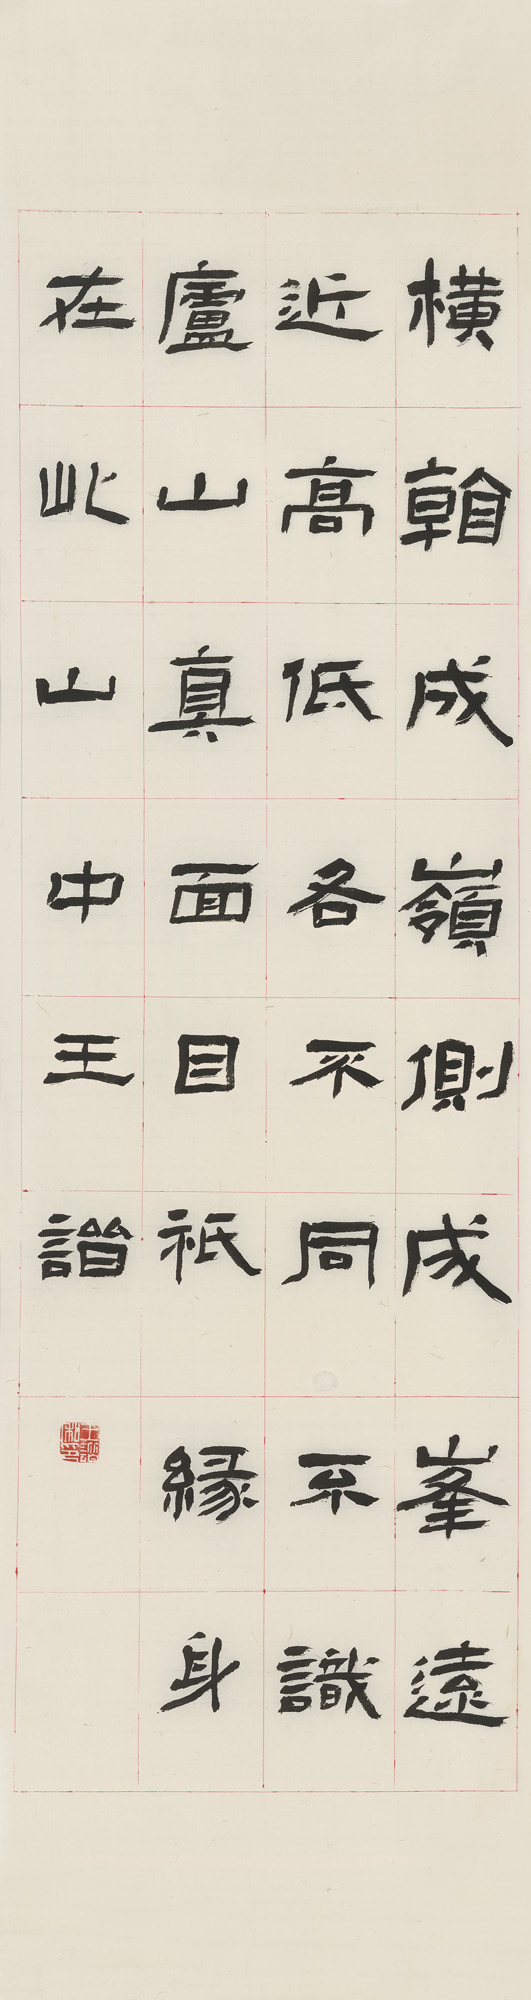 橫看成嶺側成峯遠
近高低各不同不識
廬山真面目祇緣身
在此山中王諧